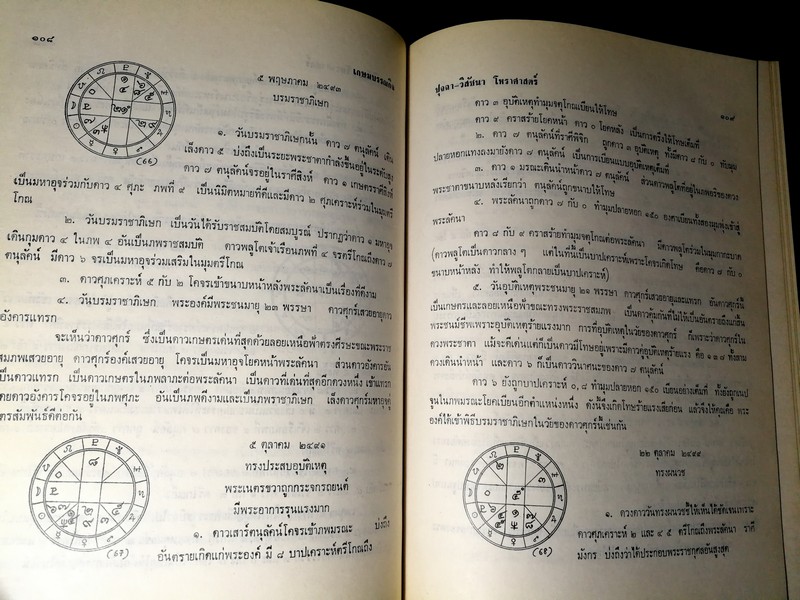 ๑๐๘
เกษมบรรณกิจ
๕ พฤษภาคม ๒๔๙๓
บรมราชาภิเษก
(66)
๑. วันบรมราชาภิเษกนั้น ดาว ๗ ตนุลัคน์ เดิน
เล็งดาว ๕ บ่งถึงเป็นระยะพระชาตากำลังขึ้นอยู่ในระดับสูง
ดาว ๗ ตนุลัคน์จรอยู่ในราศีสิงห์ ดาว ๑ เกษตรราศีสิงห์
เป็นมหาอุจร่วมกับดาว ๔ ศุภะ ภพที่ ๙ เป็นนิมิตหมายที่ดีและมีดาว ๒ ศุภเคราะห์ร่วมในมุมตรี
โกณ
๒. วันบรมราชาภิเษก เป็นวันได้รับราชสมบัติโดยสมบูรณ์ ปรากฏว่าดาว ๑ มหาอุจ
เดินกุมดาว ๔ ในภพ ๔ อันเป็นภพราชสมบัติ ดาวพลูโตเจ้าเรือนภพที่ ๔ จรตรีโกณถึงดาว ๗
ตนุลัคน์ มีดาว ๖ จรเป็นมหาอุจร่วมเสริมในมุมตรีโกณ
๓. ดาวศุภเคราะห์ ๕ กับ ๒ โคจรเข้าขนาบหน้าหลังพระลัคนาเป็นเรื่องที่ดีงาม
๔. วันบรมราชาภิเษก พระองค์มีพระชนมายุ ๒๓ พรรษา ดาวศุกร์เสวยอายุดาว
อังคารแทรก
จะเห็นว่าดาวศุกร์ ซึ่งเป็นดาวเกษตรเด่นที่สุดด้วยลอยเหนือฟ้าตรงศีรษะขณะพระราช
สมภพเสวยอายุ ดาวศุกร์องค์เสวยอายุ โคจรเป็นมหาอุจโยคหน้าพระลัคนา ส่วนดาวอังคารอัน
เป็นดาวแทรก เป็นดาวเกษตรในภพลาภะต่อพระลัคนา เป็นดาวที่เด่นที่สุดอีกดวงหนึ่ง เข้าแทรก
โดยดาวอังคารโคจรอยู่ในภพศุภะ อันเป็นภพดีงามและเป็นพระราชาภิเษก เล็งดาวศุกร์มหาอุจคู่
มิตรสัมพันธ์ดีต่อกัน
(67)
๕ ตุลาคม ๒๔๙๑
ทรงประสบอุบัติเหตุ
พระเนตรขวาถูกกระจกรถยนต์
มีพระอาการรุนแรงมาก
๑. ดาวเสาร์ตนุลัคน์โคจรเข้าภพมรณะ บ่งถึง
อันตรายเกิดแก่พระองค์ มี ๘ บาปเคราะห์ตรีโกณถึง
ปุจฉา-วิสัชนา โหราศาสตร์
๑๐๙
ดาว ๓ อุบัติเหตุทำมุมจตุโกณเบียนให้โทษ
ดาว ๙ คราสร้ายโยคหน้า ดาว ๐ โยคหลัง เป็นการตรึงให้โทษเต็มที่
๒. ดาว ๗ ตนุลัคน์ที่ราศีพิจิก ถูกดาว ๓ อุบัติเหตุ ทั้งมีดาว ๘ กับ ๐ ทำมุม
ปลายหอกแทงลงมายังดาว ๗ ตนุลัคน์ เป็นการเบียนแบบอุบัติเหตุเต็มที่
๓. ดาว ๑ มรณะเดินนำหน้าดาว ๗ ตนุลัคน์ ส่วนดาวพลูโตที่อยู่ในภพอริของดวง
พระชาตาขนาบหลังเรียกว่า ตนุลัคน์ถูกขนาบให้โทษ
๔. พระลัคนาถูกดาว ๘ กับ ๐ ทำมุมปลายหอก ๑๕๐ องศาเบียนทั้งสองมุมพุ่งเข้าสู่
พระลัคนา
ดาว ๘ กับ ๙ คราสร้ายทำมุมจตุโกณต่อพระลัคนา มีดาวพลูโตร่วมในมุมกากะบาด
(ดาวพลูโตเป็นดาวกลาง ๆ แต่ในที่นี้เป็นบาปเคราะห์เพราะโคจรเกิดโทษ คือดาว ๘ กับ ๐
ขนาบหน้าหลัง ทำให้พลูโตกลายเป็นบาปเคราะห์)
๕. วันอุบัติเหตุพระชนมายุ ๒๑ พรรษา ดาวศุกร์เสวยอายุและแทรก อันดาวศุกร์นี้
เป็นเกษตรและลอยเหนือฟ้าขณะทรงพระราชสมภพ เป็นดาวคุ้มกันที่ไม่ให้เป็นอันตรายถึงแก่สิ้น
พระชนม์ชีพเพราะอุบัติเหตุร้ายแรงมาก การที่อุบัติเหตุในวัยของดาวศุกร์ ก็เพราะว่าดาวศุกร์ใน
ดวงพระชาตา แม้จะดีเด่นแต่ก็เป็นดาวมีโทษอยู่เพราะมีดาวคู่อุบัติเหตุร้ายแรง คือ ๑๓๘ ทั้งสาม
ดวงเดินนำหน้า และดาว ๖ ก็เป็นดาววินาศนะของดาว ๗ ตนุลัคน์
ดาว ๖ ยังถูกบาปเคราะห์ ๐,๘ ทำมุมปลายหอก ๑๕๐ เบียนอย่างเต็มที่ ทั้งยังถูกเนป
จูนในภพมรณะโยคเบียนอีกตำแหน่งหนึ่ง ดังนี้จึงเกิดโทษร้ายแรงเสียก่อน แล้วจึงให้คุณคือ ทรง
องค์ได้เข้าพิธีบรมราชาภิเษกในวัยของดาวศุกร์นี้เช่นกัน
(68)
๒๒ ตุลาคม ๒๔๙๙
ทรงผนวช
๑. ดวงดาววันทรงผนวชชี้ให้เห็นได้ชัดเจนเพราะ
ดาวศุภเคราะห์ ๒ และ ๔ ๕ ตรีโกณถึงพระลัคนา ราศี
มังกร บ่งถึงว่าได้ประกอบพระราชกุศลอันสูงสุด